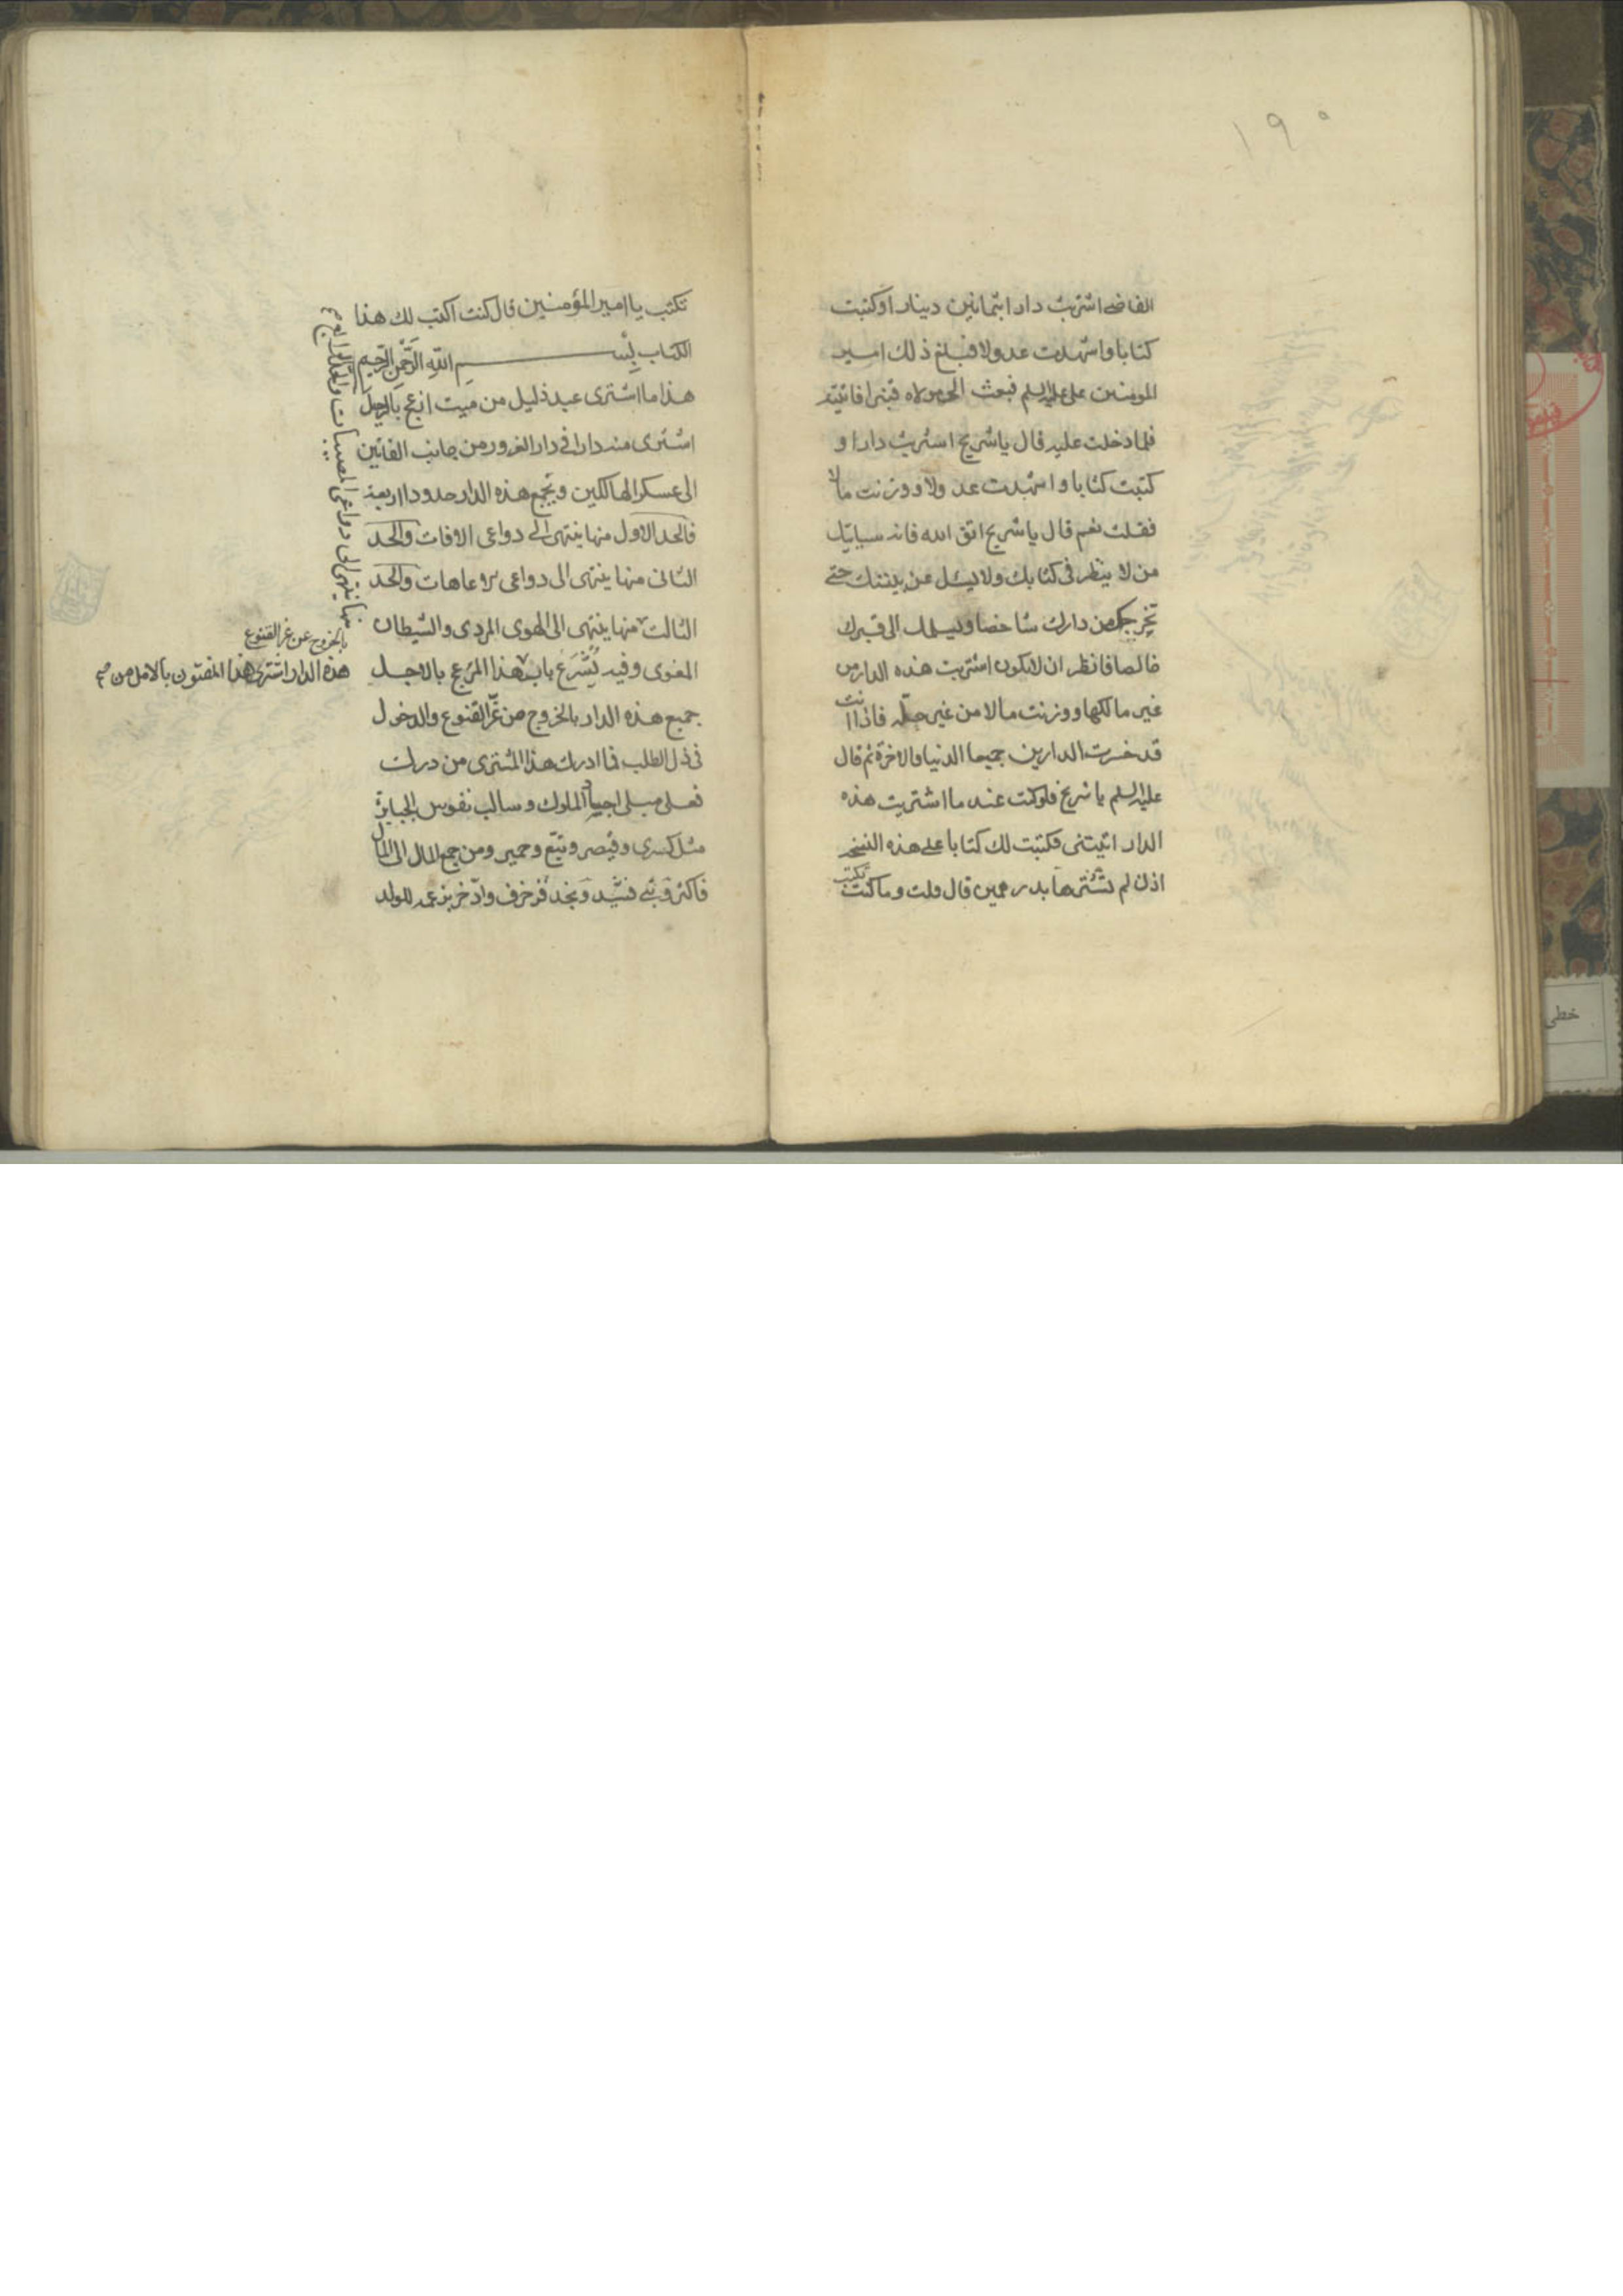 ١٩٠
القاضى اشتريت دارا بثمانين دينارا وكتبت
كتابا واشهدت عدولا فبلغ ذلك امير
المومنين على عليه السلم فبعث الى مولاه قنبرا فاتيته
فلما دخلت عليه قال يا شريح اشتريت دارا و
كتبت كتابا واشهدت عدولا ووزنت مالا
فقلت نعم قال يا شريح اتق الله فانه سياتيك
من لا ينظر فى كتابك ولا يسئل عن بينتك حتى
يخرجك من دارك شاخصا ويسلمك الى قبرك
خالصا فانظر ان لا تكون اشتريت هذه الدار من
غير مالكها ووزنت مالا من غير حله فاذا انت
قد خسرت الدارين جميعا الدنيا والاخرة ثم قال
عليه السلم يا شريح فلو كنت عند ما اشتريت هذه
الدار اتيتنى فكتبت لك كتابا على هذه النسخه
اذن لم تشترها بدرهمين قال قلت وما كنت تكتب
تكتب يا امير المؤمنين قال كنت اكتب لك هذا
الكتاب بِسم الله الرحمن الرحيم
هذا ما اشترى عبد ذليل من ميت ازعج بالرحيل
اشترى منه دارا فى دار الغرور من جانب الفانين
الى عسكر الهالكين وتجمع هذه الدار حدودا اربعة
فالحد الاول منها ينتهى الى دواعى الافات والحد
الثانى منها ينتهى الى دواعى عاهات والحد
الثالث منها ينتهى الى الهوى المردى والشيطان
المغوى وفيه يُشرَع باب هذا المزعج بالاجل
جميع هذه الدار بالخروج من عزّ القنوع والدخول
فى ذل الطلب فما ادرك هذا المشترى من درك
فعلى مبلى اجساد الملوك وسالب نفوس الجبابرة
مثل كسرى وقيصر وتبّع وحمير ومن جمع المال الى المال
فاكثر وبنى فشيّد ونجد فزخرف وادّخر بزعمه للولد
منها ينتهى الى دواعى المصيبات والحد الرابع
بالخروج عن عز القنوع
هذه الدار اشترى هذا المفتون بالامل من
خطى